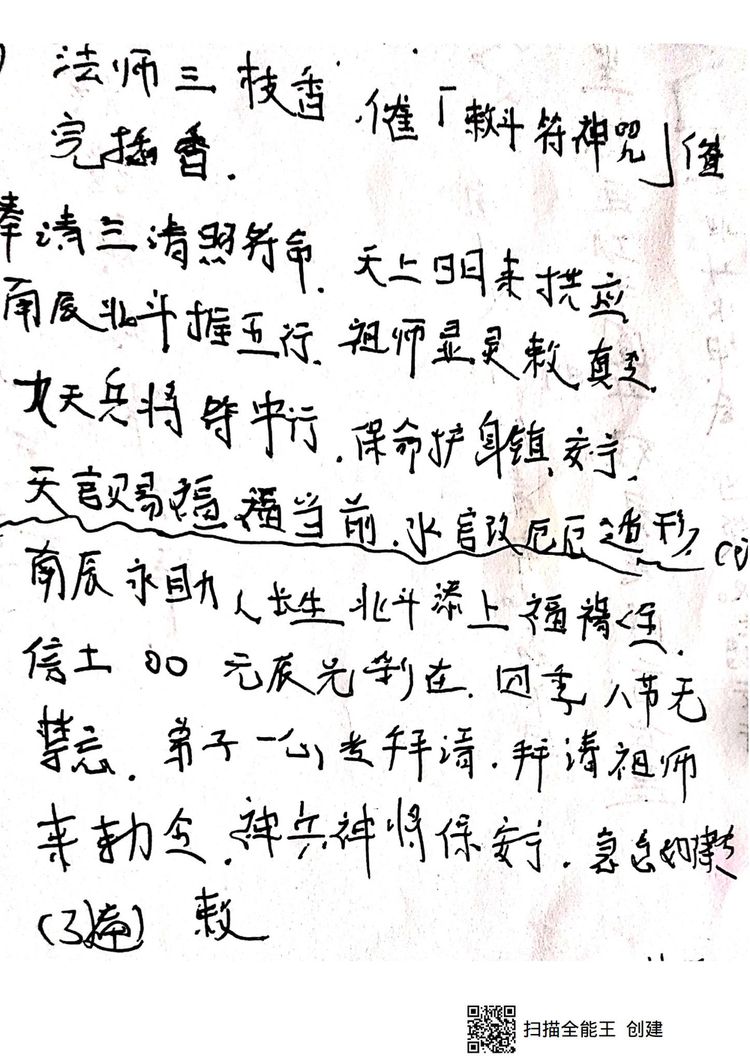 法师三枝香.催「敕斗符神咒」催
完插香.
奉请三清照符命.天上日日来拱应
南辰北斗推五行.祖师显灵敕真
九天兵将等中行.保命护身镇安宁.
天官赐福福当前.水官改厄厄造形.
南辰永助人长生北斗添上福禄
信士○○元辰光到在.四季八节无
禁忌.弟子一心专拜请.拜请祖师
来敕令.神兵神将保安宁.急急如律
(3遍) 敕
扫描全能王 创建